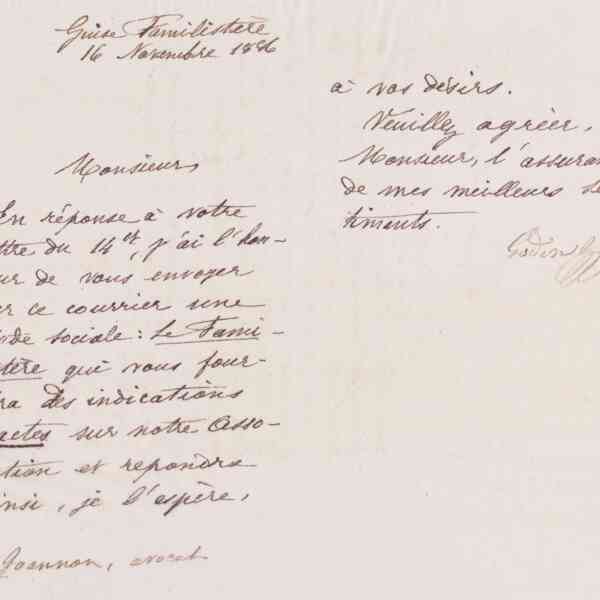 Guise Familistère
16 Novembre 1886
Monsieur,
En réponse à votre
ttre du 14 ct, j'ai l'hon-
ur de vous envoyer
r ce courrier une
de sociale : Le Fami-
tère qui vous four-
ra des indications
actes sur notre Asso-
tion et repondra
insi, je l'espère,
Joannon, avocat
à vos désirs.
Veuillez agréer,
Monsieur, l'assuran
de mes meilleurs se
timents.
Godin